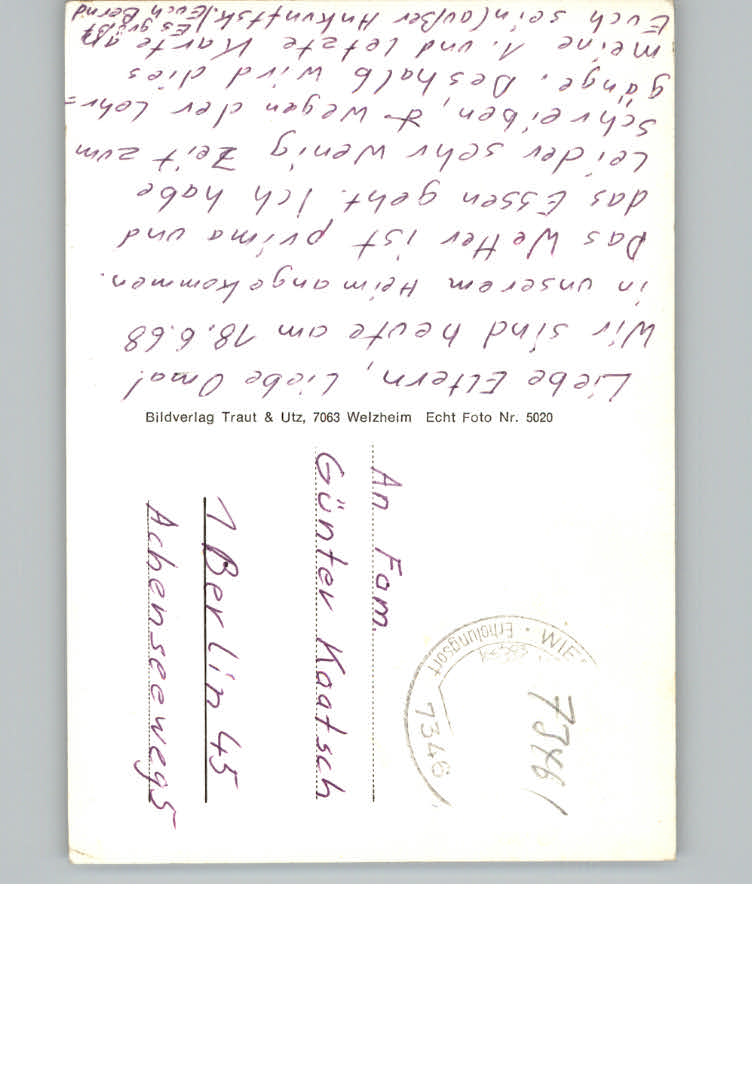 Liebe Eltern, liebe Oma!
Wir sind heute am 18.6.68
in unserem Heim angekommen.
Das Wetter ist prima und
das Essen geht. Ich habe
leider sehr wenig Zeit zum
schreiben, wegen der Lehr-
gänge. Deshalb wird dies
meine 1. und letzte Karte an
Euch sein (außer Ankunftsk.)
Es grüßt
Euch Bernd
Bildverlag Traut & Utz, 7063 Welzheim Echt Foto Nr. 5020
An Fam.
Günter Kaatsch
1 Berlin 45
Achenseeweg 5
7346 WIE
Erholungsort
7346